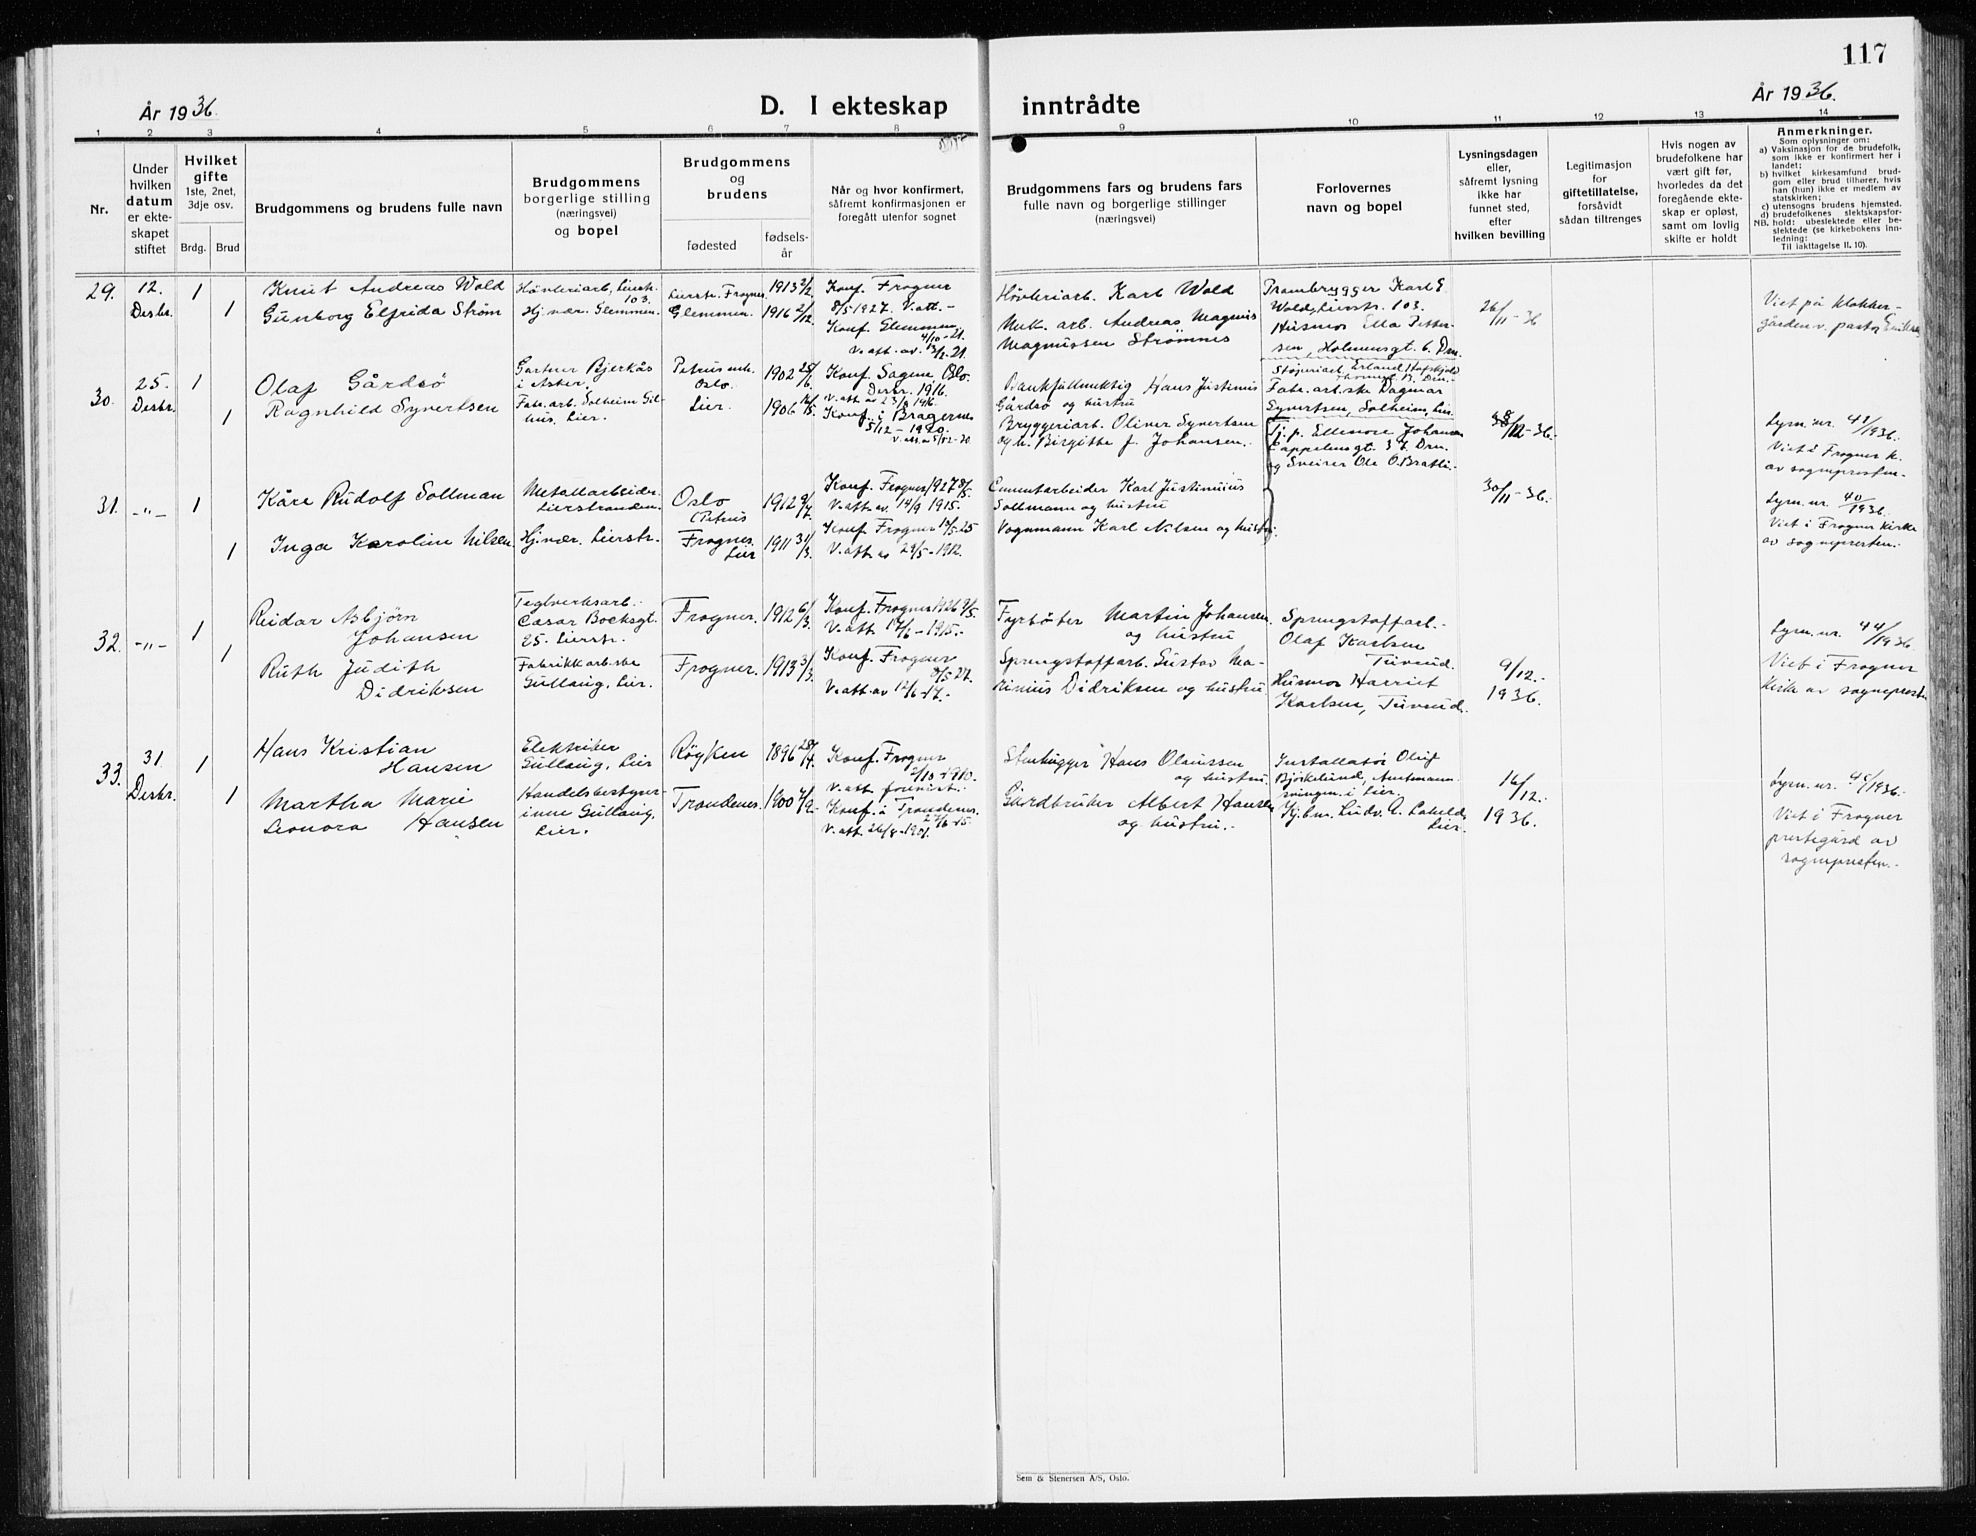 117
År 1936.
D. I ekteskap inntrådte
År 1936.
1 2 3 4 5 6 7 8 9 10 11 12 13 14
Nr.
Under
hvilken
datum
er ekte-
skapet
stiftet
Hvilket
gifte
1ste, 2net,
3dje osv.
Brdg. Brud
Brudgommens og brudens fulle navn
Brudgommens
borgerlige stilling
(næringsvei)
og bopel
Brudgommens
og
brudens
fødested
fødsels-
år
Når og hvor konfirmert,
såfremt konfirmasjonen er
foregått utenfor sognet
Brudgommens fars og brudens fars
fulle navn og borgerlige stillinger
(næringsvei)
Forlovernes
navn og bopel
Lysningsdagen
eller,
såfremt lysning
ikke har
funnet sted,
efter
hvilken bevilling
Legitimasjon
for
giftetillatelse,
forsåvidt
sådan tiltrenges
Hvis nogen av
brudefolkene har
vært gift før,
hvorledes da det
foregående ekte-
skap er opløst,
samt om lovlig
skifte er holdt
Anmerkninger.
Som oplysninger om:
a) Vaksinasjon for de brudefolk,
som ikke er konfirmert her i
landet;
b) hvilket kirkesamfund brud-
gom eller brud tilhører, hvis
han (hun) ikke er medlem av
statskirken;
c) utensogns brudens hjemsted.
d) brudefolkenes slektskapsfor-
hold: ubeslektede eller be-
slektede (se kirkebokens inn-
ledning:
NB. Til iakttagelse II. 10).
29.
12.
Desbr.
1
1
Knut Andreas Wold
Gunborg Elfrida Strøm
Høvleriarb, Lierstr.
103.
Hj.vær. Glemmen.
Lierstr. Frogner.
Glemmen.
1913 2/2.
1916 2/12.
Konf. Frogner
8/5 1927. V.att.-
Konf. Glemmen
V.att. av.
Høvleriarb. Karl Wold
Mek. arb. Andreas Magnus
Magnussen Strømnes
Prambrygger Karl E
Wold, Lierstr. 103.
Husmor Ella Petter-
sen, Holmensgt. 6. Drm.
26/11-36
Viet på klokker-
gården v. pastor
30.
25.
Desbr.
1
1
Olaf Gårdsø
Ragnhild Synertsen
Gartner Bjerkås
i Asker.
Fabr.arb. Solheim Gil-
hus, Lier.
Petrus mh.
Oslo.
Lier.
1902 25/6.
1906
Konf. Sagene Oslo.
Desbr. 1916.
V.att av
Konf. i Bragernes
5/12-1920.
Bankfullmektig Hans Justinius
Gårdsø og hustru
Bryggeriarb. Oliver Synertsen
og h. Birgitte f. Johansen.
Fabr.arb.ske Dagmar
Synertsen, Solheim, Lier
Tj.p. Ellenore Johansen
Cappelensgt. 37. Drm.
og Sverre Ole O. Bratli.
/12-36.
Lysn. nr. 41/1936.
Viet i Frogner k.
av sognepresten.
31.
-"-
1
1
Kåre Rudolf Sollman
Inga Karoline Nilsen
Metallarbeider.
Lierstranden.
Hj.vær. Lierstr.
Oslo
(Petrus
Frogner.
Lier
1912 9/4.
1911 31/3.
Konf. Frogner 1927 8/5.
V.att. av. 14/9 1915.
Konf. Frogner 25
V.att av 29/5-1912.
Cementarbeider Karl Justinius
Sollmann og hustru
Vognmann Karl Nilsen og hustru
30/11-36.
Lysn. nr. 40/1936.
Viet i Frogner kirke
av sognepresten.
32.
-"-
1
1
Reidar Asbjørn
Johansen
Ruth Judith
Didriksen
Teglverksarb.
Cæsar Boeksgt.
25. Lierstr.
Fabrikkarb.ske
Gullaug, Lier.
Frogner.
Frogner.
1912 6/3.
1913 3/3.
Konf. Frogner 1926 9/5.
V.att 17/6-1915.
Konf. Frogner
8/5 27.
V.att av 12/6-17.
Fyrbøter Martin Johansen.
og hustru
Sprengstoffarb. Gustav Ma-
rinius Didriksen og hustru
Sprengstoffarb.
Olaf Karlsen
Tuverud.
Husmor Harriet
Karlsen, Tuverud.
9/12.-
1936.
Lysn. nr. 44/1936.
Viet i Frogner
kirke av sognepresten
33.
31.
Desbr.
1
1
Hans Kristian
Hansen
Martha Marie
Leonora Hansen
Elektriker
Gullaug, Lier
Handelsbestyrer-
inne Gullaug,
Lier.
Røyken
Trondenes.
1896 28/4.
1900 7/9.
Konf. Frogner
2/10-1910.
V.att forevist.
Konf. i Trondenes.
27/6-15
V.att 26/8-1901.
Stenhugger Hans Olaussen
og hustru.
Gårdbruker Albert Hansen
og hustru.
Installatør Oluf
Bjørkelund, Amtmann-
svingen i Lier.
Lier.
16/12.
1936.
Lysn. nr. 45/1936.
Viet i Frogner
prestegård av
sognepresten.
Sem & Stenersen A/S, Oslo.